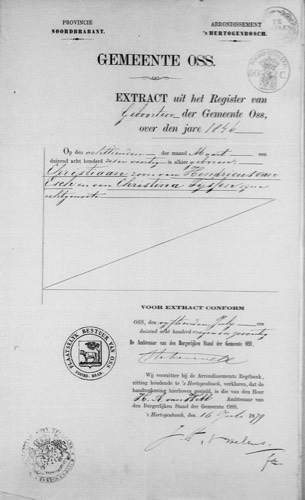 PROVINCIE
NOORDBRABANT.
ARRONDISSEMENT
'S HERTOGENBOSCH.
GEMEENTE OSS.
EXTRACT uit het Register van
Geboorten der Gemeente Oss,
over den jare 1846
Op den achttienden der maand Maart een
duizend acht honderd zes en veertig is alhier geboren:
Christiaan zoon van Hendricus van
Esch en van Christina zijne
echtgenoote
VOOR EXTRACT CONFORM
OSS, den vijftienden July een
duizend acht honderd negen en zeventig
De Ambtenaar van den Burgerlijken Stand der Gemeente OSS.
PLAATSELIJK BESTUUR VAN OSS
NOORD-BRAB.
Wij voorzitter bij de Arrondissements Regtbank,
zitting houdende te 's Hertogenbosch, verklaren, dat de
handteekening hierboven gesteld, is die van den Heer
Ambtenaar van
den Burgerlijken Stand der Gemeente OSS.
's Hertogenbosch, den 16 July 1879